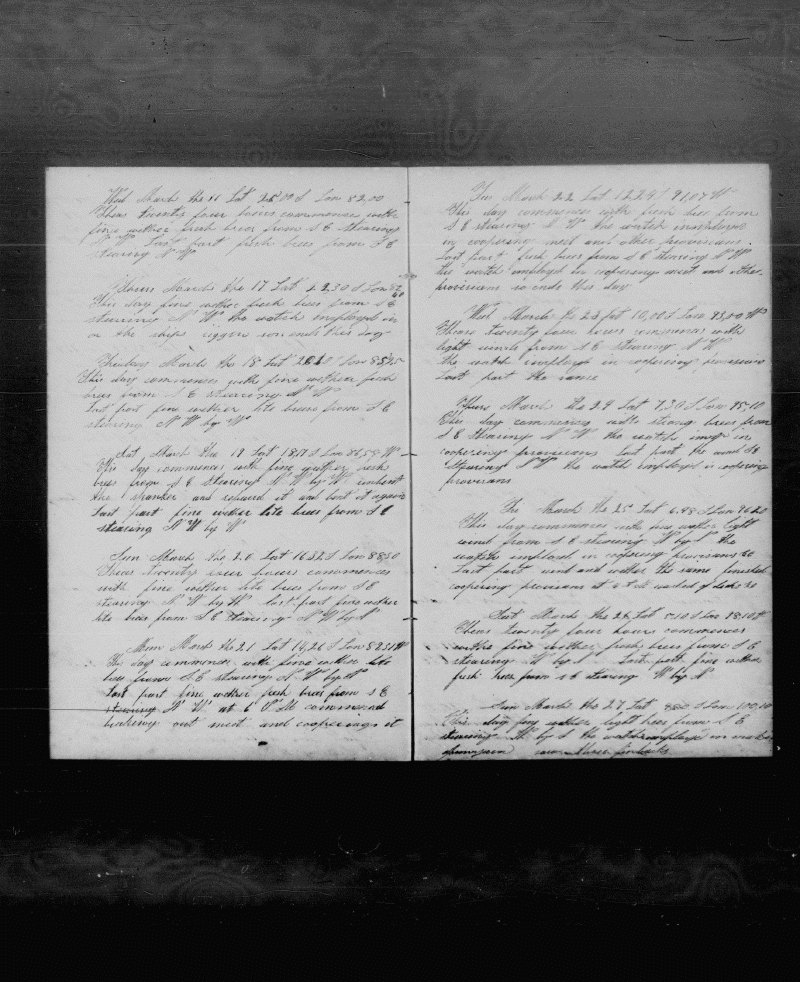 Wed March the 16 Lat 25,00 S Lon 82,00
Theas twenty four houers commences with
fine wether fresh brees from S E stearing
N W Last part fresh brees from S E
stearing N W
Thurs March the 17 Lat 22,30 S Lon
This day fine wether fresh brees from S E
stearing N W the watch imployed in
on the ships riggen so ends this day
March the 18 Lat S Lon 85,25
This day commences with fine wether fresh
brees from S E stearing N W
Last part fine wether lite brees from S E
stearing N W by W
Sat March the 19 Lat S Lon W
This day commences with fine wether fresh
brees from S E stearing N W by W unbent
the spanker and repaired it and bent it again
Last part fine wether lite brees from S E
stearing N W by W
Sun March the 20 Lat 16,32 S Lon 88,50
Theas twenty four houers commences
with fine wether lite brees from S E
stearing N W by W Last part fine wether
lite brees from S E stearing N W by N
Mon March the 21 Lat 14,26 S Lon W
This day commence with fine wether lite
brees from S E stearing N W by N
Last part fine wether fresh brees from S E
stearing N W at 6 P M commenced
braking out meet and cooperings it
Tus March 22 Lat 12,29 S 91,07 W
This day commences with fresh brees from
S E stearing N W the watch imployed
in coopering meet and other provisions
Last part fresh brees from S E stearing N W
the watch employd in coopering meet and other
provisions so ends this day
Wed March the 23 Lat 10,00 S Lon 93,00 W
Theas twenty four houers commences with
light winds from S E stearing N W
the watch employ in coopering provisions
Last part the same
Thurs March the 24 Lat 7,30 S Lon 95,10
This day commences with strong brees from
S E stearing N W the watch in
coopering provisions Last part the wind S E
Stearing N W the watch employd in coopering
provisions
Fri March the 25 Lat 6,48 S Lon 96,20
This day commences with fine wether light
wind from S E stearing W by N the
watch employd in coopering provisions
Last part wind and wether the same finished
coopering provisons at 4 P M washed of decks
Sat March the 26 Lat S Lon
Theas twenty four houers commences
withe fine wether fresh brees from S E
stearing W by N Last part fine wether
fresh brees from S E stearing W by N
Sun March the 27 Lat S Lon 100,10
This day wether light brees from S E
stearing W by S the watch employd in
saw three finbacks